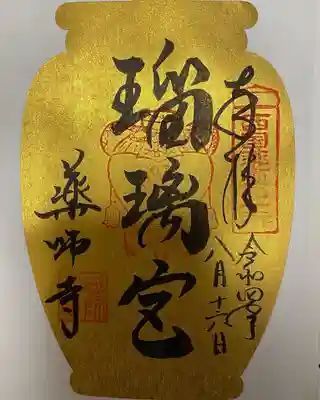 奉拝
令和四年
八月十六日
瑠璃宮
薬師寺